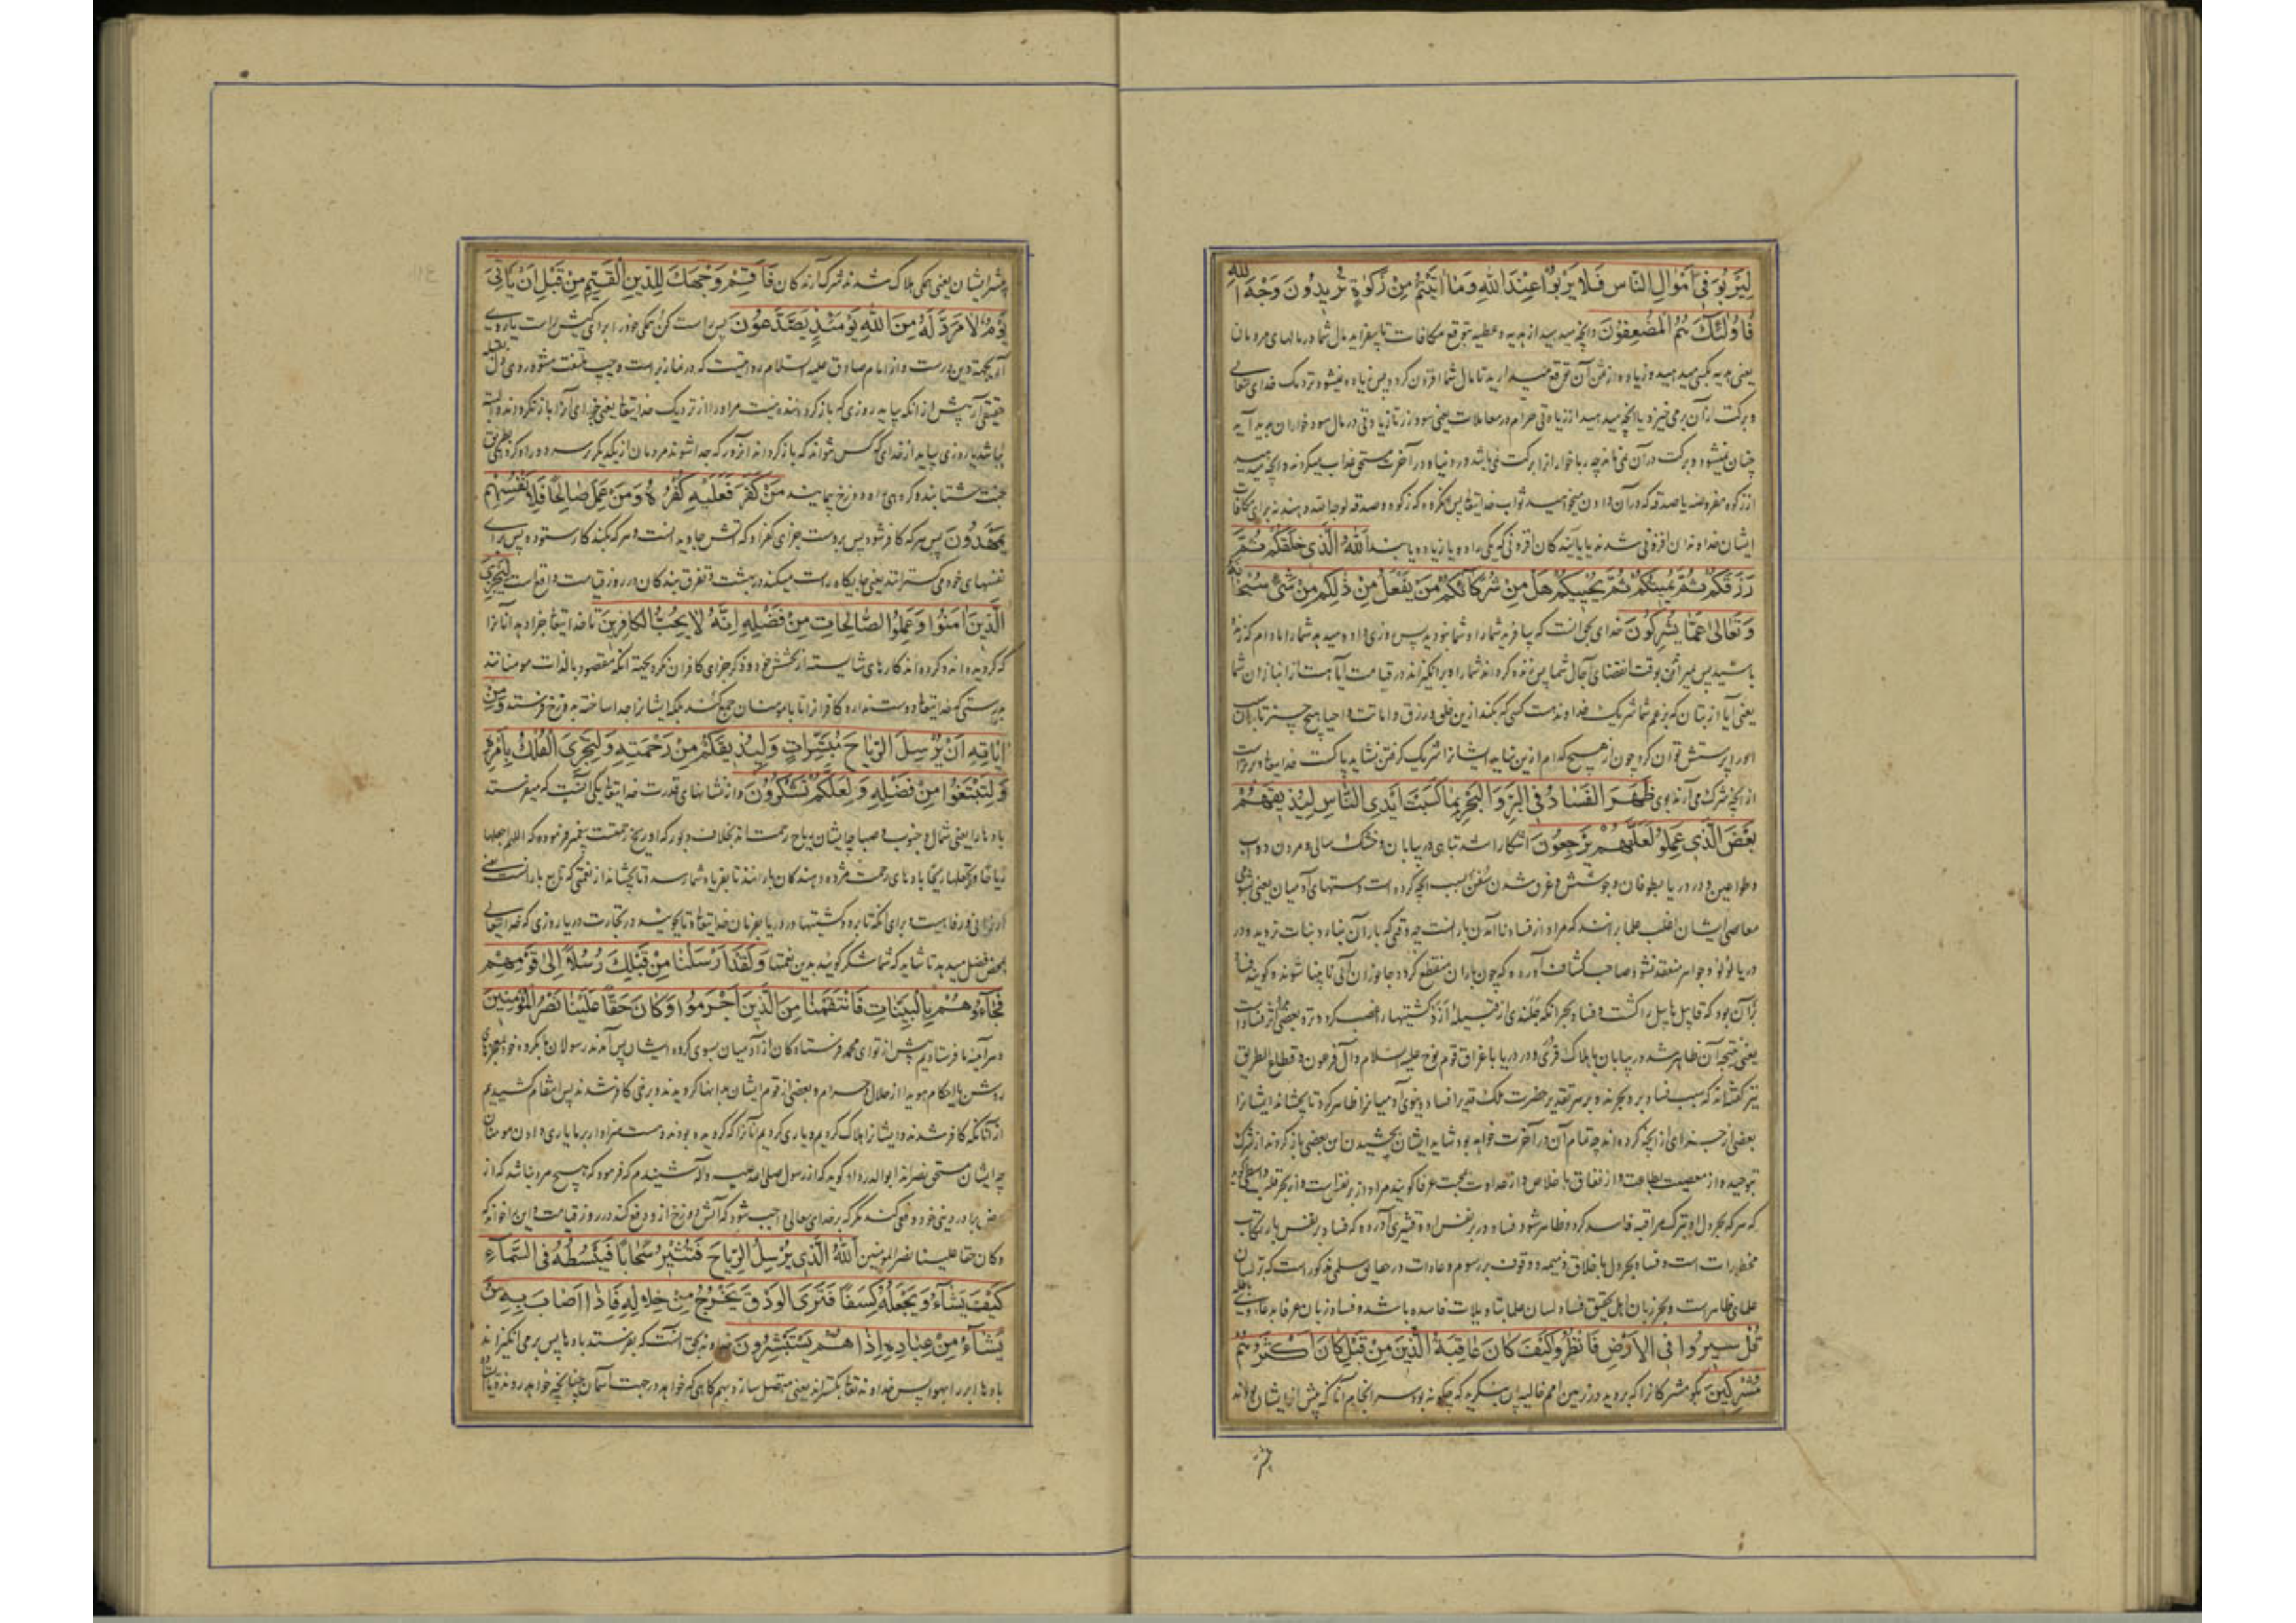 لِيَرْبُوَ فِي أَمْوَالِ النَّاسِ فَلَا يَرْبُوا عِنْدَ اللهِ وَمَا آتَيْتُمْ مِنْ زَكٰوةٍ تُرِيدُونَ وَجْهَ اللهِ
فَاُولٰئِكَ هُمُ الْمُضْعِفُونَ وانچه میدهید از هدیه و عطیه بتوقع مکافات تا بیفزاید مال شما در مالهای مردمان
یعنی هدیه بکسی میدهید و زیاده از ثمن آن توقع میدارید تا مال شما افزون کردد پس زیاده نمیشود نزدیک خدای تعالی
و برکت ازآن برمی خیزد یا انچه میدهید از زیادتی حرام در معاملات یعنی سود و زر تا زیادتی در مال سود خواران پدید آید
چنان نمیشود و برکت درآن نمی ماند چه ربا خوار را برکت نمی باشد در دنیا و در آخرت مستحق عذاب میکردند و انچه میدهید
از زکوه مفروضه یا صدقه که درآن دادن میخواهید ثواب خدایتعالی پس آنکروه که زکوه و صدقه لوجه الله دهند نه برای مکافات
ایشان خداوندان افزونی شدند یا یابندکان افزونی که یکی را ده یا زیاده یابند اَللهُ الَّذِي خَلَقَكُمْ ثُمَّ
رَزَقَكُمْ ثُمَّ يُمِيتُكُمْ ثُمَّ يُحْيِيكُمْ هَلْ مِنْ شُرَكَائِكُمْ مَنْ يَفْعَلُ مِنْ ذٰلِكُمْ مِنْ شَيْءٍ سُبْحَانَهُ
وَتَعَالٰى عَمَّا يُشْرِكُونَ خدای بحق انست که بیافرید شما را و شما نبودید پس روزی داد و میدهد شما را مادام که زنده
باشید پس میراند بوقت انقضای آجال شما پس زنده کرداند شما را و برانکیزاند در قیامت آیا هست از انبازان شما
یعنی آیا از بتان که بزعم شما شریک خداوند هست کسی که بکند ازین خلق و رزق و اماتت و احیا هیچ چیز تا بدان
اورا پرستش توان کرد چون از هیچ کدام ازین نیاید ایشانرا شریک کرفتن نشاید پاکست خدایتعالی و برتراست
از انچه شرک می آرند بوی ظَهَرَ الْفَسَادُ فِي الْبَرِّ وَالْبَحْرِ بِمَا كَسَبَتْ اَيْدِي النَّاسِ لِيُذِيقَهُمْ
بَعْضَ الَّذِي عَمِلُوا لَعَلَّهُمْ يَرْجِعُونَ آشکارا شد تباهی در بیابان و خشک سالی و مردن دواب
و طواعین و در دریا بطوفان و جوشش و غرق شدن سفن بسبب انچه کرده است دستهای آدمیان یعنی بشومی
معاصی ایشان اغلب علما برانند که مراد از فساد نا آمدن بارانست چه وقتی که باران نباید نبات نروید و در
دریا لؤلؤ و جواهر منعقد نشود صاحب کشاف آورده که چون باران منقطع کردد جانوران آبی نابینا شوند و کویند فساد
بر آن بود که قابیل هابیل را کشت و فساد بحر انکه جلندی از قبیله ازد کشتیها را غصب کرد
یعنی نتیجه آن ظاهر شد در بیابان با هلاک قری و در دریا با غراق قوم نوح علیه السلام و آل فرعون و قطاع الطریق
نیز کفته اند که سبب فساد بر و بحرند و بر هر تقدیر حضرت ملک قدیر فساد دنیوی آدمیانرا ظاهر کرد تا بچشاند ایشانرا
بعضی از جزای انچه کرده اند چه تمام آن در آخرت خواهد بود شاید ایشان بچشیدن این بعضی باز کردند از شرک
بتوحید و از معصیت بطاعت و از نفاق باخلاص و از عداوت بمحبت عرفا کویند مراد از بر نفس است و از بحر قلب
که هر که بحر دل او بترک مراقبه فاسد کردد ظاهر شود فساد در بر نفس او و قشیری آورده که فساد بر نفس بارتکاب
محظورات است و فساد بحر دل باخلاق ذمیمه و وقوف بر رسوم و عادات در حقایق سلمی مذکور است که بر لسان
علمای ظاهر است و بحر زبان اهل تحقیق فساد لسان علما بتاویلات فاسده باشد و فساد زبان عرفا بدعاوی باطله
قُلْ سِيرُوا فِي الْاَرْضِ فَانْظُرُوا كَيْفَ كَانَ عَاقِبَةُ الَّذِينَ مِنْ قَبْلُ كَانَ اَكْثَرُهُمْ
مُشْرِكِينَ بکو مشرکانرا که بروید در زمین امم خالیه پس بنکرید که چکونه بود سرانجام آنانکه پیش از ایشان بوده اند
بیشتر
بیشتر ایشان یعنی همکی هلاک شدند شرک آرندکان فَاَقِمْ وَجْهَكَ لِلدِّينِ الْقَيِّمِ مِنْ قَبْلِ اَنْ يَاْتِيَ
يَوْمٌ لَا مَرَدَّ لَهُ مِنَ اللهِ يَوْمَئِذٍ يَصَّدَّعُونَ پس راست کن همکی خود را برای کیش راست یا روی
آر بجهة دین درست و از امام صادق علیه السلام روایتست که در نماز بر راست و چپ ملتفت مشو و روی دل بقبله
حقیقی آر پیش از انکه بیاید روزی که باز کرداننده نیست مر او را از نزدیک خدایتعالی یعنی خدای آنرا باز نکرداند و البته
بباشد یا روزی بیاید از خدای که کس نتواند که باز کرداند آنروز که جدا شوند مردمان از یکدیکر بر سر دو راه کروهی بطریق
جنت شتابنده کروهی راه دوزخ پیمایند مَنْ كَفَرَ فَعَلَيْهِ كُفْرُهُ وَمَنْ عَمِلَ صَالِحًا فَلِاَنْفُسِهِمْ
يَمْهَدُونَ پس هر که کافر شود پس بروست جزای کفر او که آتش جاوید انست و هر که بکند کار ستوده پس برای
نفسهای خود می کسترانند یعنی جایکاه راست میکند در بهشت و تفرق بندکان در روز قیامت واقع است لِيَجْزِيَ
الَّذِينَ آمَنُوا وَعَمِلُوا الصَّالِحَاتِ مِنْ فَضْلِهِ اِنَّهُ لَا يُحِبُّ الْكَافِرِينَ تا خدایتعالی جزا دهد آنانرا
که کرویده اند و کرده اند کارهای شایسته از بخشش خود و ذکر جزای کافران نکرد بجهة انکه مقصود بالذات مومنانند
بدرستی که خدایتعالی دوست ندارد کافرانرا تا با مومنان جمع کند بلکه ایشانرا جدا ساخته بدوزخ فرستد وَمِنْ
اٰيَاتِهِ اَنْ يُرْسِلَ الرِّيَاحَ مُبَشِّرَاتٍ وَلِيُذِيقَكُمْ مِنْ رَحْمَتِهِ وَلِتَجْرِيَ الْفُلْكُ بِاَمْرِهِ
وَلِتَبْتَغُوا مِنْ فَضْلِهِ وَلَعَلَّكُمْ تَشْكُرُونَ و از نشانهای قدرت خدایتعالی یکی آنست که میفرستد
بادها را یعنی شمال و جنوب و صبا چه ایشان ریاح رحمت اند بخلاف دبور که او ریح زحمتست پیغمبر فرموده که اللهم اجعلها
ریاحا و لا تجعلها ریحا بادهای رحمت مژده دهندکان باراند تا بفریاد شما رسد و تا بچشاند از نعمتی که تابع بارانست یعنی
ارزانی و رفاهیت و برای انکه تا برود کشتیها در دریا بفرمان خدایتعالی و تا بجویند در تجارت دریا روزی که خدایتعالی
بمحض فضل میدهد تا شاید که شما شکر کویید بدین نعمتها وَلَقَدْ اَرْسَلْنَا مِنْ قَبْلِكَ رُسُلًا اِلٰى قَوْمِهِمْ
فَجَاءُوهُمْ بِالْبَيِّنَاتِ فَانْتَقَمْنَا مِنَ الَّذِينَ اَجْرَمُوا وَكَانَ حَقًّا عَلَيْنَا نَصْرُ الْمُؤْمِنِينَ
و هر آینه ما فرستادیم پیش از تو ای محمد فرستادکان از آدمیان بسوی کروه ایشان پس آمدند رسولان ما بکروه خود بمعجزهای
روشن یا احکام هویدا از حلال و حرام و بعضی از قوم ایشان بدانها کرویدند و برخی کافر شدند پس انتقام کشیدیم
از آنانکه کافر شدند و ایشانرا هلاک کردیم و یاری کردیم آنانرا که کرویده بودند و هست سزاوار بر ما یاری دادن مومنان
چه ایشان مستحق نصراند ابوالدرداء کوید که از رسول صلی الله علیه و آله شنیدم که فرمود که هیچ مرد نباشد که از
عرض برادر دینی خود دفع کند مکر که بر خدای تعالی واجب شود که آتش دوزخ از و دفع کند در روز قیامت و این برخواند که
و کان حقا علینا نصر المؤمنین اَللهُ الَّذِي يُرْسِلُ الرِّيَاحَ فَتُثِيرُ سَحَابًا فَيَبْسُطُهُ فِي السَّمَاءِ
كَيْفَ يَشَاءُ وَيَجْعَلُهُ كِسَفًا فَتَرَى الْوَدْقَ يَخْرُجُ مِنْ خِلَالِهِ فَاِذَا اَصَابَ بِهِ مَنْ
يَشَاءُ مِنْ عِبَادِهِ اِذَا هُمْ يَسْتَبْشِرُونَ خداوند بحق آنست که بفرستد بادها پس برمی انکیزاند
بادها ابر را بهوا پس خداوند تعالی بکستراند یعنی متصل سازد بهم کاهی که خواهد در جهت آسمان چنانچه خواهد رونده یا